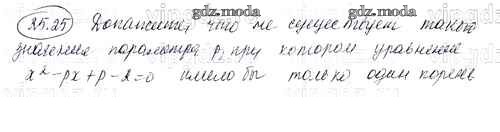 gdz.moda gdz.moda
25.25 Докажите, что не существует такого
значения параметра р, при котором уравнение
x² - px + p - 2 = 0 имело бы только один корень